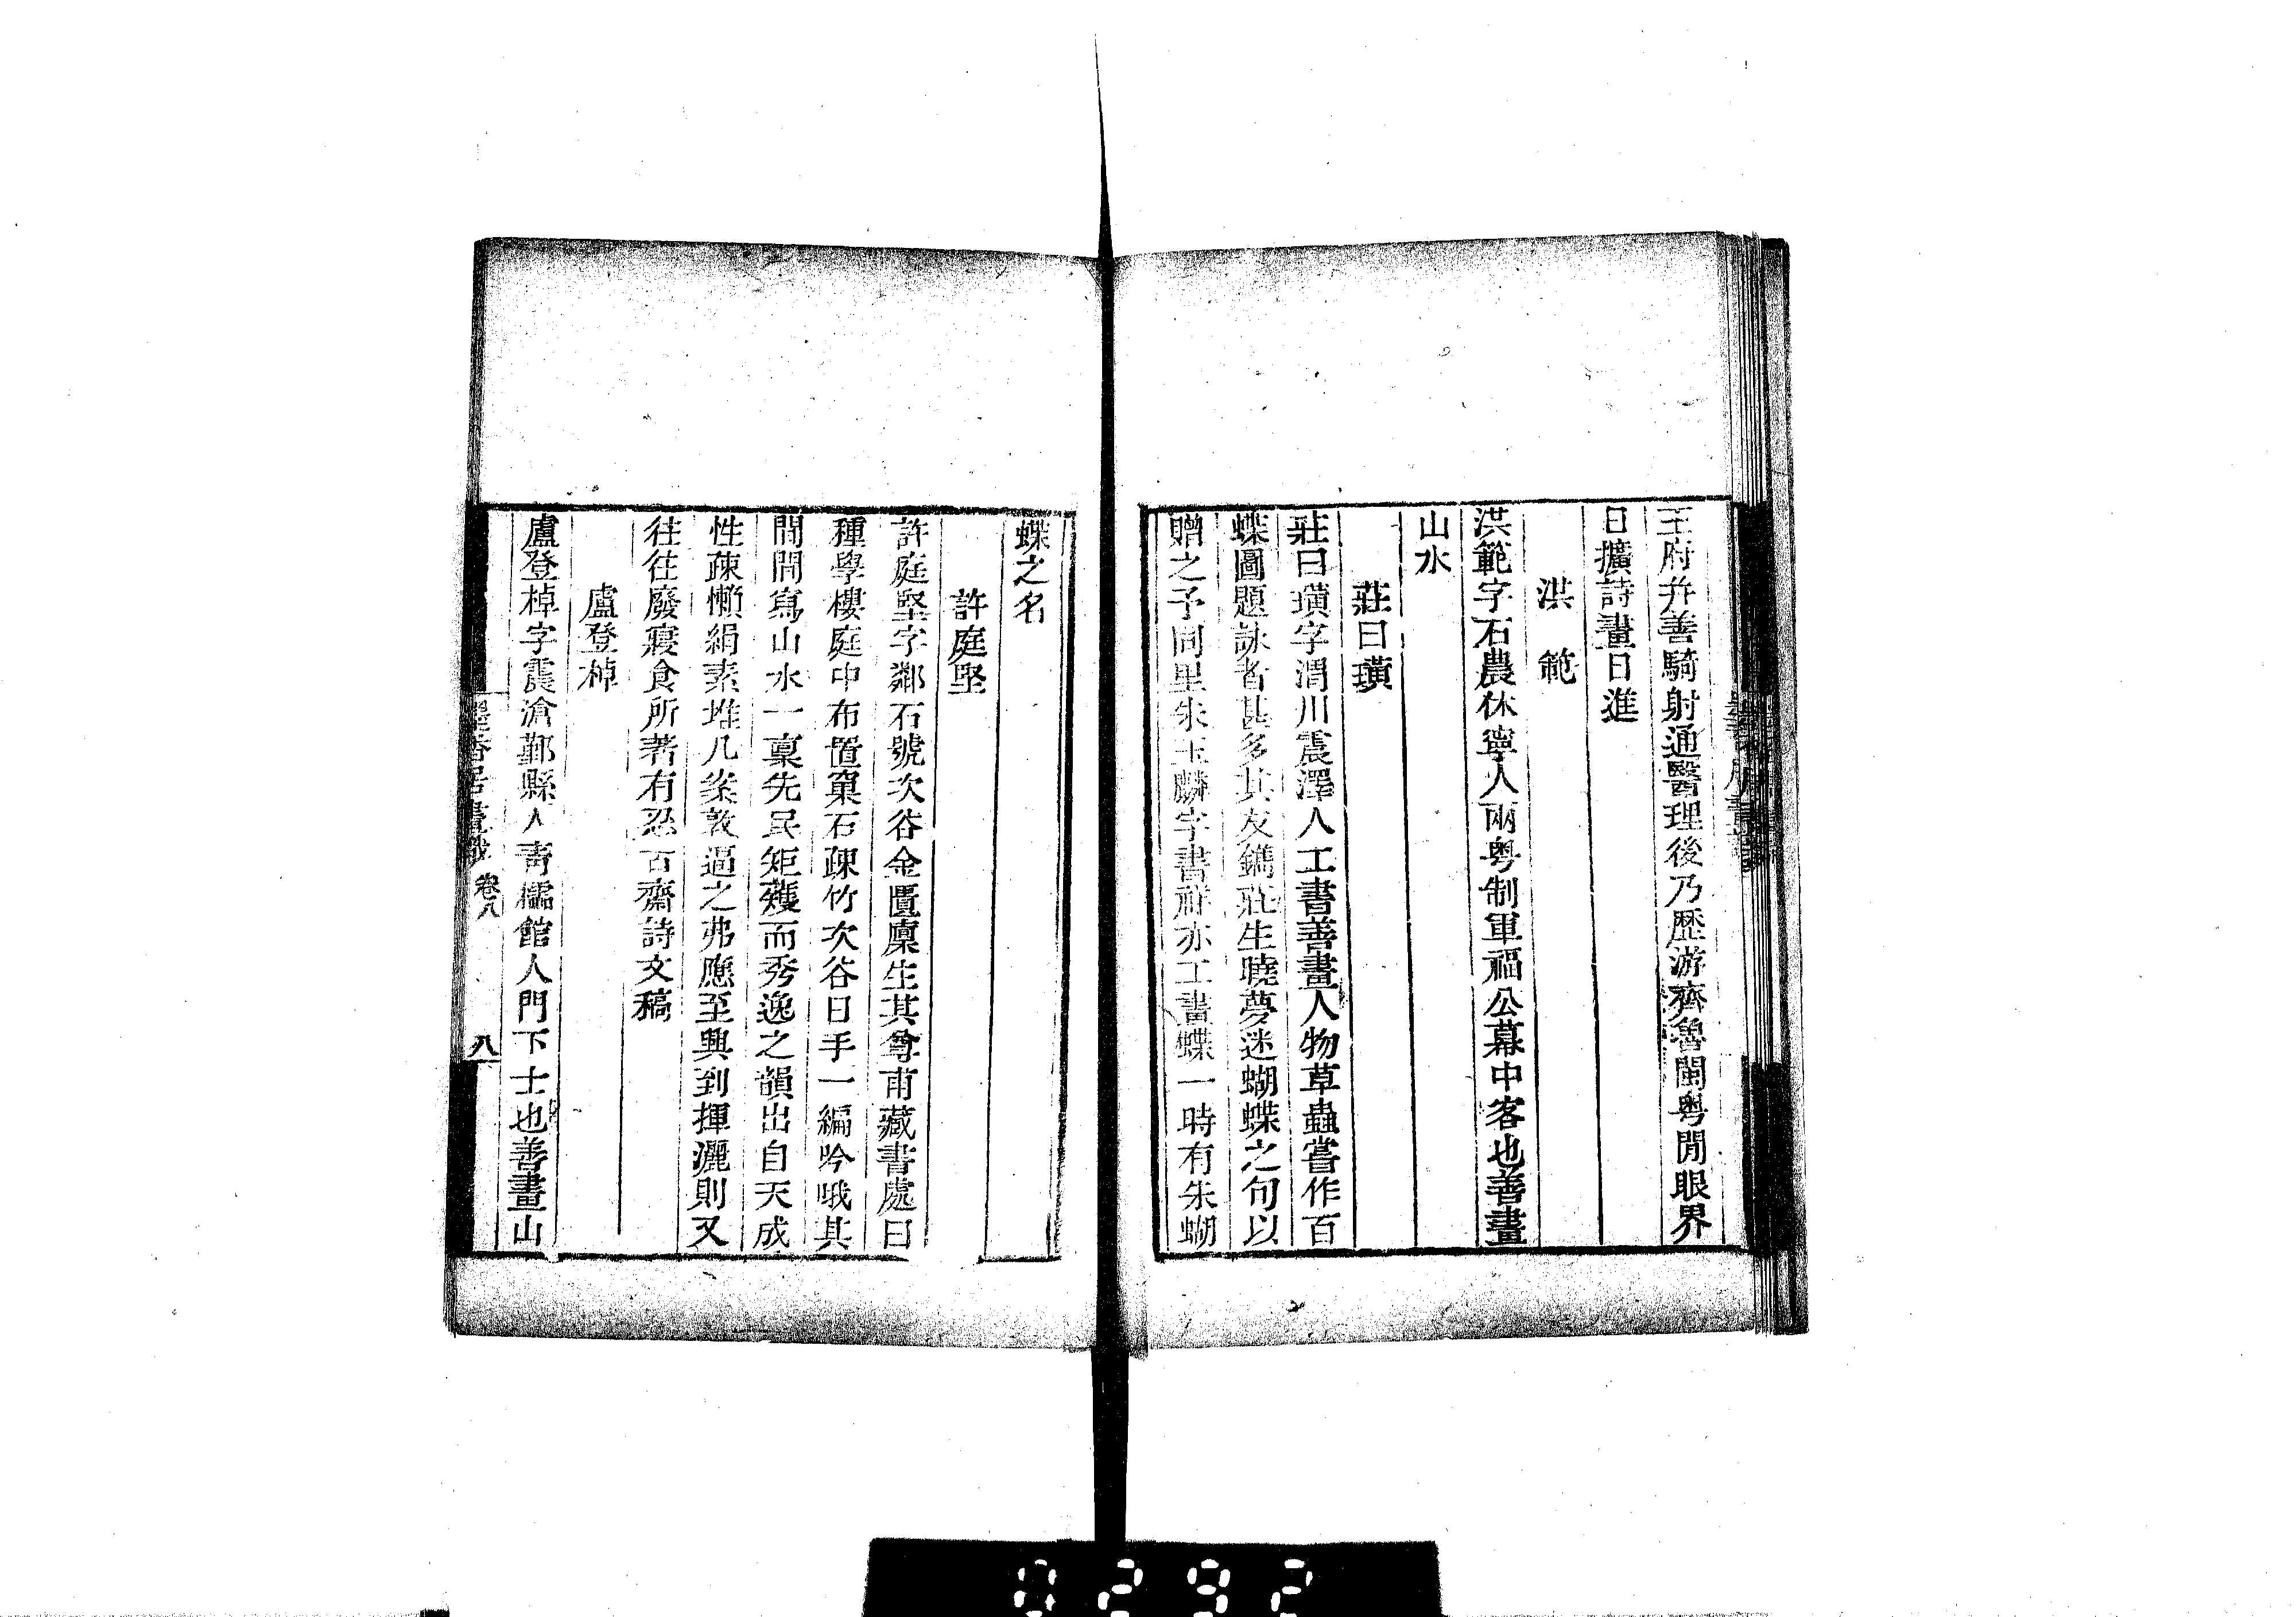 王府幷善騎射通醫理後乃歷游齊魯閩粤閒眼界
日擴詩畫日進
洪範
洪範字石農休寧人兩粤制軍福公幕中客也善畫
山水
莊曰璜
莊曰璜字渭川震澤人工書善畫人物草蟲嘗作百
蝶圖題詠者甚多其友鐫莊生曉夢迷蝴蝶之句以
贈之予同里朱玉麟字書祥亦工畫蝶一時有朱蝴
蝶之名
許庭堅
許庭堅字鄰石號次谷金匱廩生其尊甫藏書處曰
種學樓庭中布置窠石疎竹次谷日手一編吟哦其
間間寫山水一稟先民矩矱而秀逸之韻出自天成
性疎懶絹素堆几案敦逼之弗應至興到揮灑則又
往往廢寢食所著有忍古齋詩文稿
盧登棹
盧登棹字震滄鄞縣人靑欞館人門下士也善畫山
墨香居畫識 卷八 八
0292